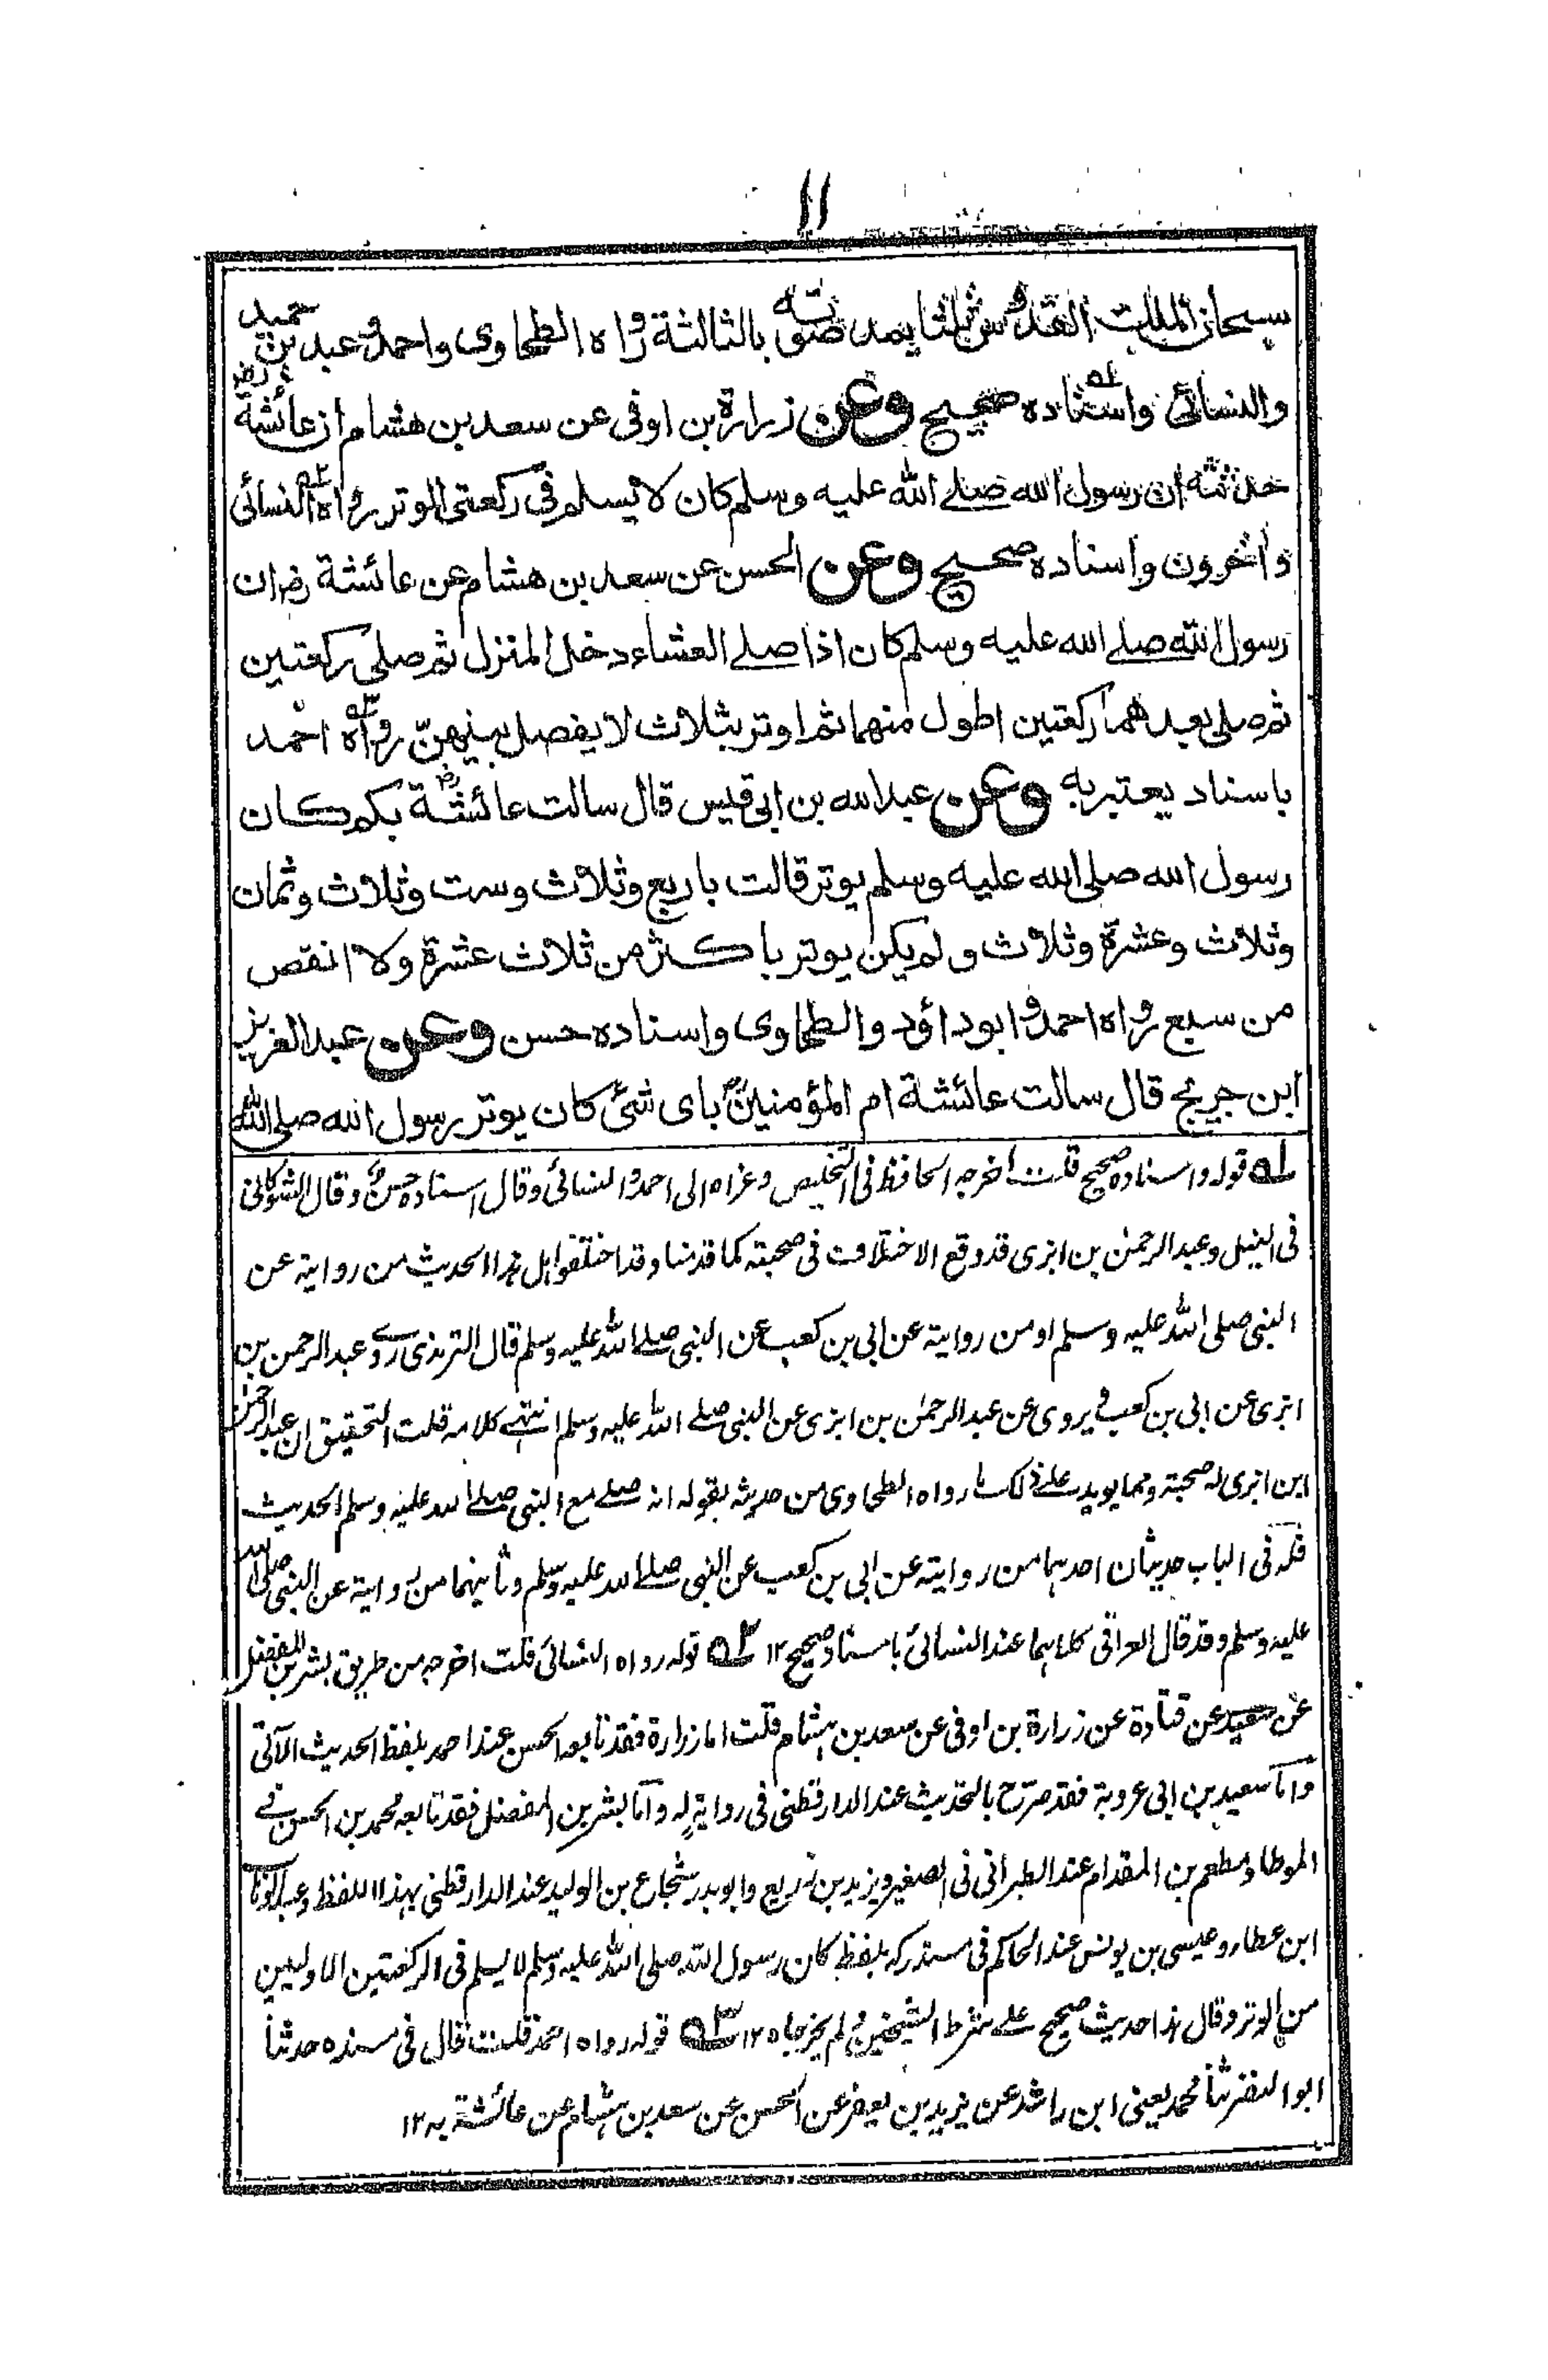 ١١
سبحان الملك القدوس ثلثا يمد صوته بالثالثة رواه الطحاوى واحمد وعبد بن حميد
والنسائى واسناده له صحيح وعن زرارة بن اوفى عن سعد بن هشام ان عائشة رض
حدثته ان رسول الله صلے الله عليه وسلم كان لا يسلم فى ركعتى الوتر رواه ٢ه النسائى
وآخرون واسناده صحيح وعن الحسن عن سعد بن هشام عن عائشة رض ان
رسول الله صلے الله عليه وسلم كان اذا صلے العشاء دخل المنزل ثم صلى ركعتين
ثم صلى بعدهما ركعتين اطول منهما ثم اوتر بثلاث لا يفصل بينهن رواه ٣ه احمد
باسناد يعتبر به وعن عبدالله بن ابى قيس قال سالت عائشة رض بكم كان
رسول الله صلى الله عليه وسلم يوتر قالت باربع وثلاث وست وثلاث وثمان
وثلاث وعشرة وثلاث ولم يكن يوتر باكثر من ثلاث عشرة ولا انقص
من سبع رواه احمد وابو داؤد والطحاوى واسناده حسن وعن عبد العزيز
ابن جريج قال سالت عائشة ام المؤمنين رض باى شئ كان يوتر رسول الله صلى الله
له قوله واسناده صحيح قلت اخرجه الحافظ فى التخليص وعزاه الى احمد والنسائى وقال اسناده حسن وقال الشوكانى
فى النيل وعبد الرحمٰن بن ابزى قد وقع الاختلاف فى صحبته كما قدمنا وقد اختلفوا هل هذا الحديث من روايته عن
النبى صلى الله عليه وسلم او من روايته عن ابى بن كعب عن النبى صلے الله عليه وسلم قال الترمذى روے عبد الرحمن بن
ابزى عن ابى بن كعب و يروى عن عبد الرحمٰن بن ابزى عن النبى صلے الله عليه وسلم انتهے كلامه قلت التحقيق ان عبد الرحمٰن
ابن ابزى له صحبته ومما يويد علے ذلك ما رواه الطحاوى من حديثه بقوله انه صلے مع النبى صلے الله عليه وسلم الحديث
فله فى الباب حديثان احدهما من روايته عن ابى بن كعب عن النبى صلے الله عليه وسلم وثانيهما من رواية عن النبى صلى الله
عليه وسلم وقد قال العراقى كلاهما عند النسائى باسناد صحيح ١٢ ٢ه قوله رواه النسائى قلت اخرجه من طريق بشر بن المفضل
عن سعيد عن قتادة عن زرارة بن اوفى عن سعد بن هشام قلت اما زرارة فقد تابعه الحسن عند احمد بلفظ الحديث الآتى
واما سعيد بن ابى عروبة فقد صرح بالتحديث عند الدارقطنى فى رواية له واما بشر بن المفضل فقد تابعه محمد بن الحسن فے
الموطا ومطعم بن المقدام عند الطبرانى فى الصغير ويزيد بن زريع وابو بدر شجاع بن الوليد عند الدارقطنى بهذا اللفظ وعبد الوهاب
ابن عطاء وعيسى بن يونس عند الحاكم فى مستدركه بلفظ كان رسول الله صلى الله عليه وسلم لا يسلم فى الركعتين الاوليين
من الوتر وقال هذا حديث صحيح علے شرط الشيخين ولم يخرجاه ١٢ ٣ه قوله رواه احمد قلت قال فى مسنده حدثنا
ابو النضر ثنا محمد يعنى ابن راشد عن يزيد بن يعفر عن الحسن عن سعد بن هشام عن عائشة به ١٢